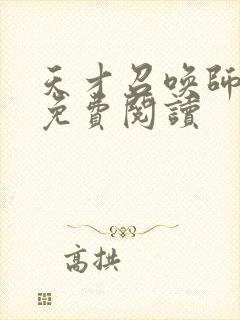 天才召喚師
免費閱讀
高拱